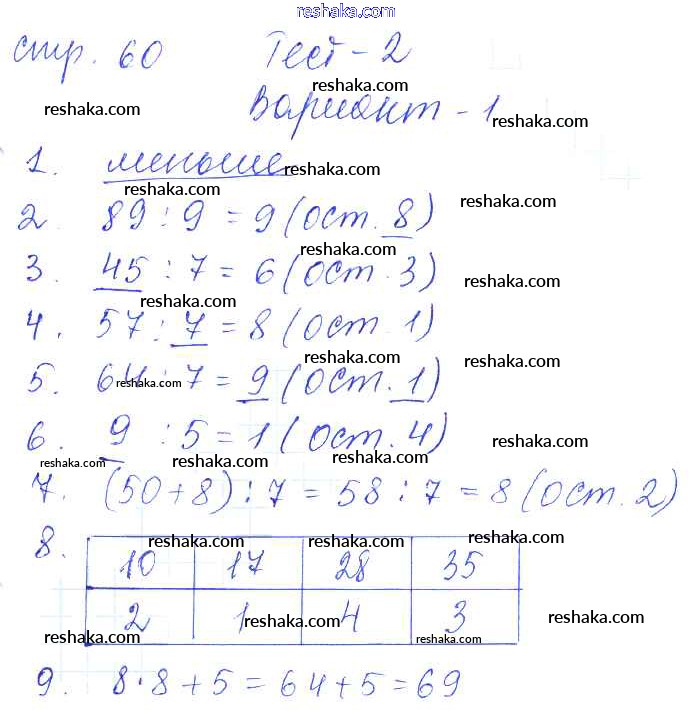 reshaka.com
стр. 60 Тест - 2
reshaka.com
reshaka.com
Вариант - 1
reshaka.com
1. меньше
reshaka.com
reshaka.com
2. 89 : 9 = 9 (ост. 8)
reshaka.com
reshaka.com
3. 45 : 7 = 6 (ост. 3)
reshaka.com
reshaka.com
4. 57 : 7 = 8 (ост. 1)
reshaka.com
reshaka.com
5. 64 : 7 = 9 (ост. 1)
reshaka.com
6. 9 : 5 = 1 (ост. 4)
reshaka.com
reshaka.com
reshaka.com
reshaka.com
7. (50 + 8) : 7 = 58 : 7 = 8 (ост. 2)
8.
reshaka.com
reshaka.com
reshaka.com
10 17 28 35
2 1 4 3
reshaka.com
reshaka.com
reshaka.com
reshaka.com
9. 8 · 8 + 5 = 64 + 5 = 69